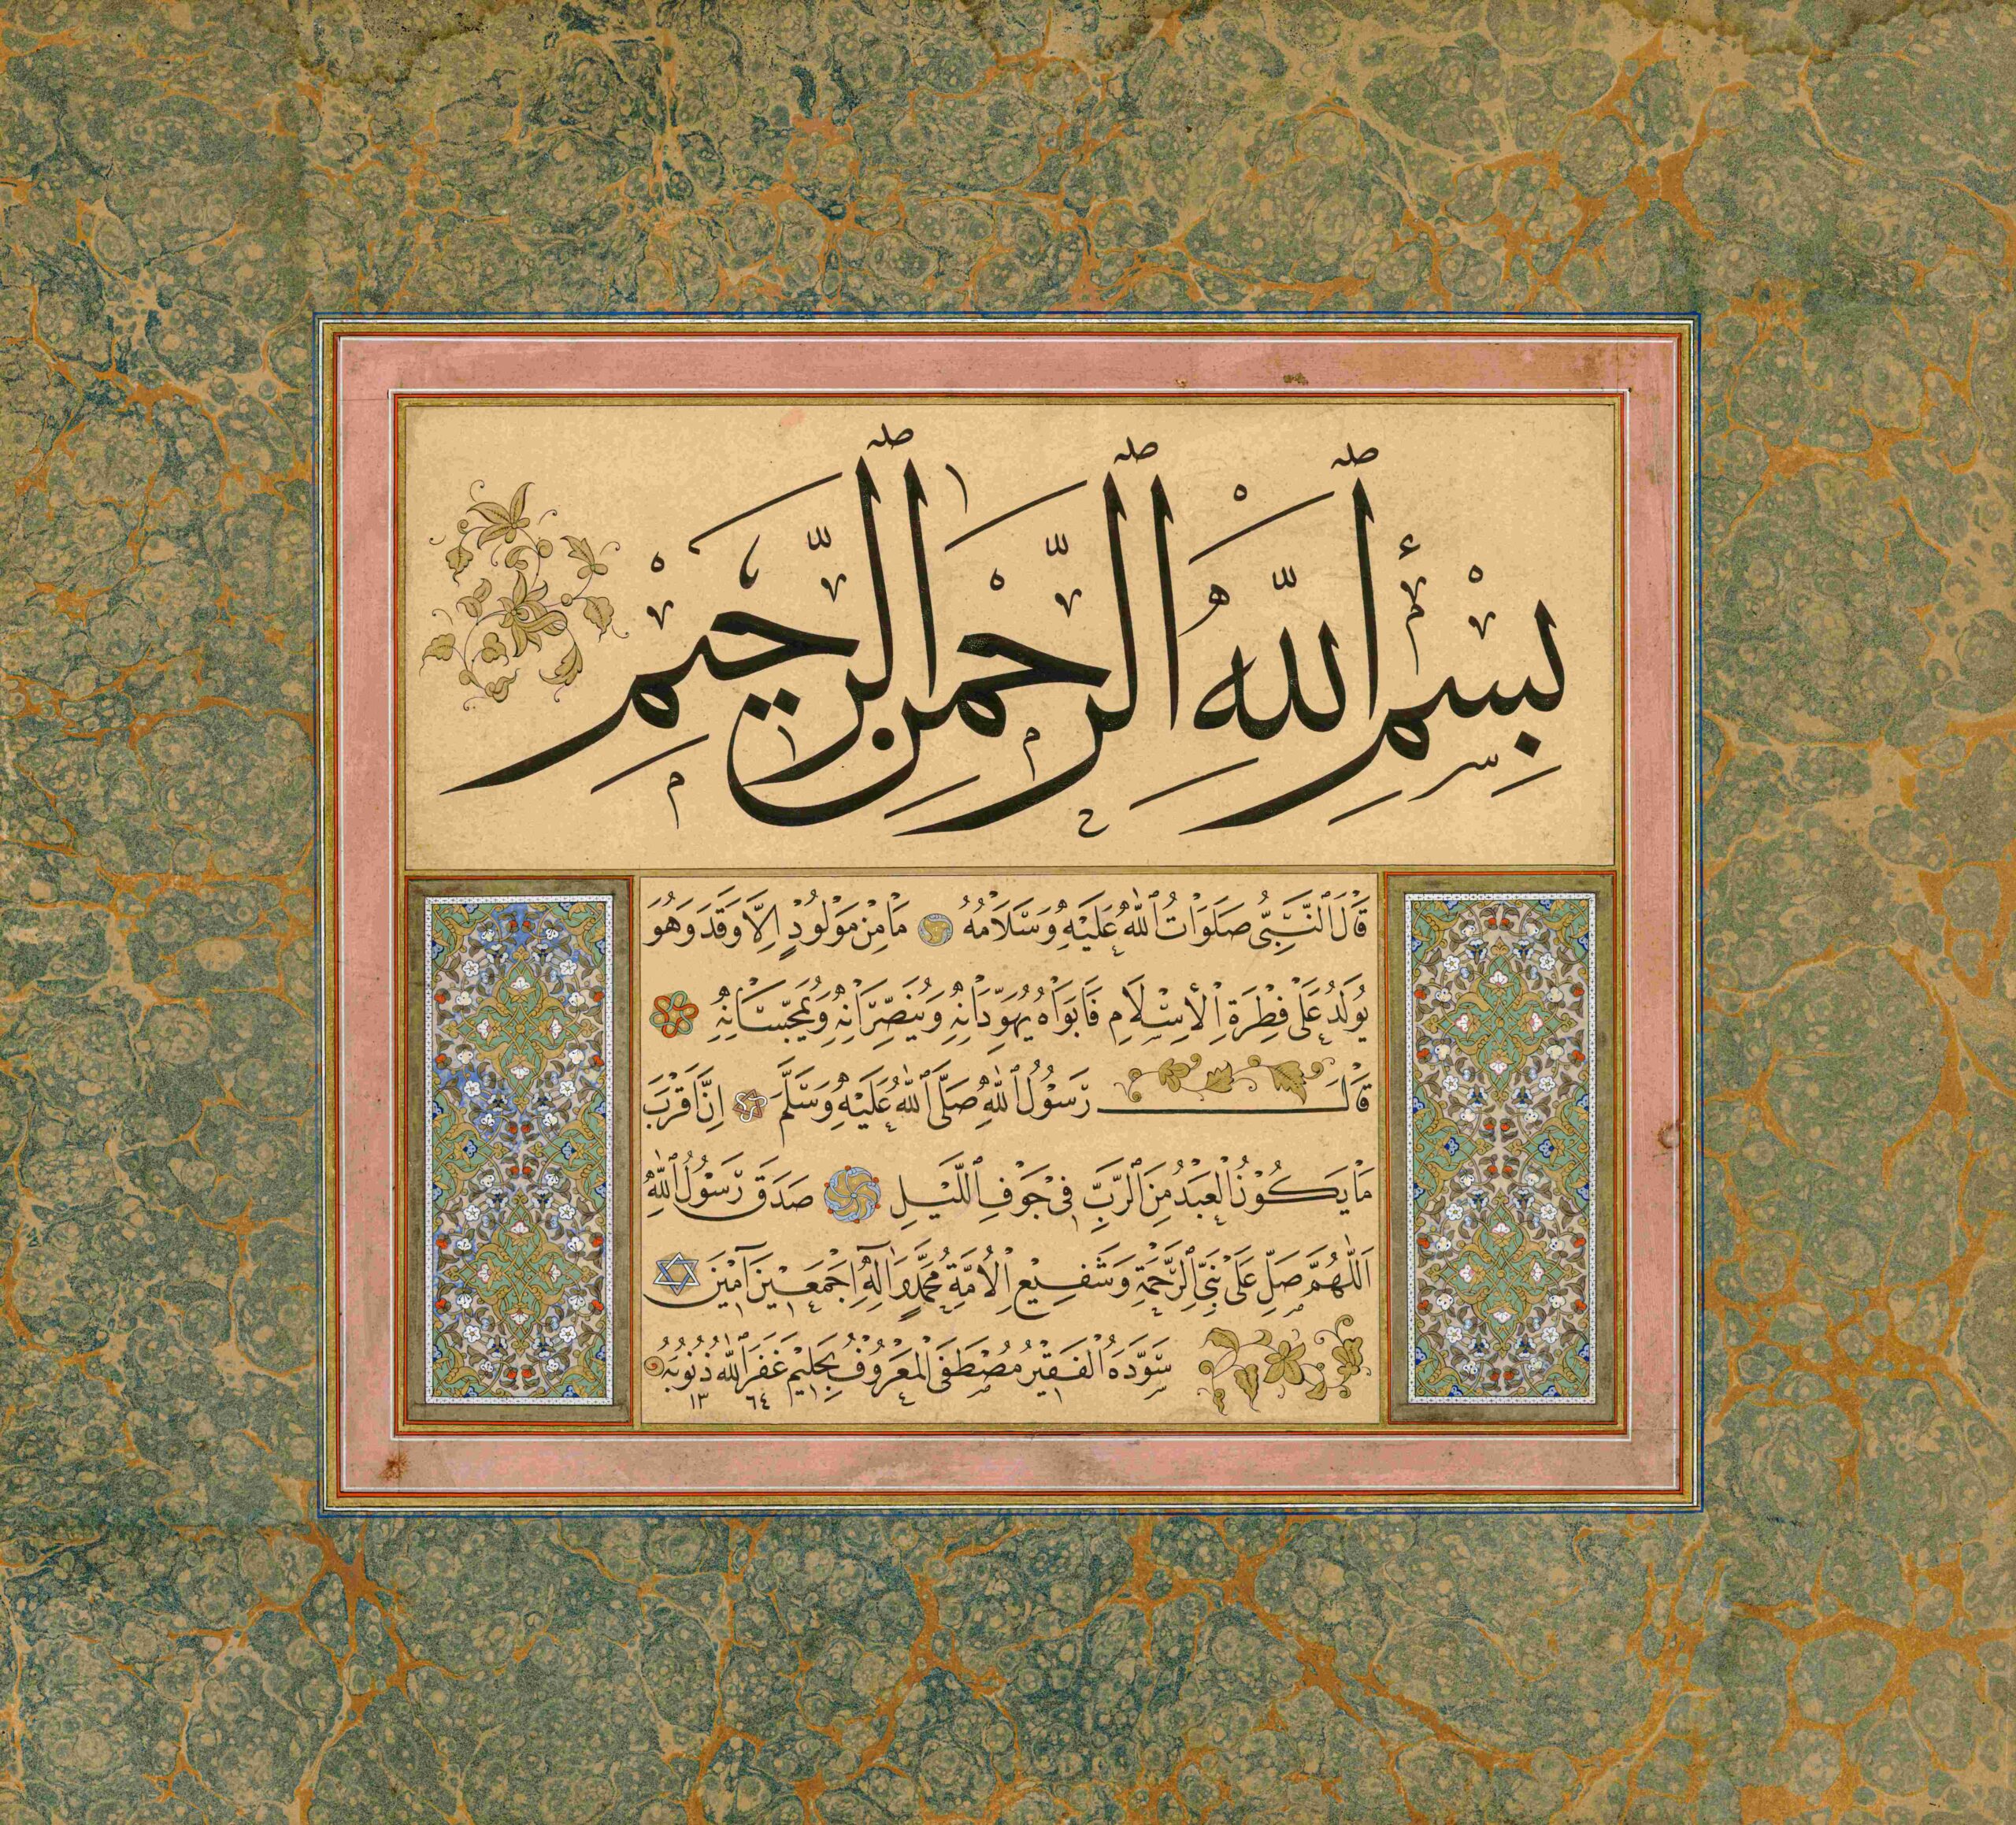 بِسْمِ ٱللَّهِ ٱلرَّحْمٰنِ ٱلرَّحِيمِ
قَالَ ٱلنَّبِيُّ صَلَوَاتُ ٱللّٰهِ عَلَيْهِ وَسَلَامُهُ مَا مِنْ مَوْلُودٍ اِلَّا وَقَدْ وَهُوَ
يُولَدُ عَلٰى فِطْرَةِ الْاِسْلَامِ فَاَبَوَاهُ يُهَوِّدَانِهِ وَيُنَصِّرَانِهِ وَيُمَجِّسَانِهِ
قَالَ رَسُولُ ٱللّٰهِ صَلَّى ٱللّٰهُ عَلَيْهِ وَسَلَّمَ اِنَّ اَقْرَبَ
مَا يَكُونُ الْعَبْدُ مِنَ ٱلرَّبِّ فِي جَوْفِ ٱللَّيْلِ صَدَقَ رَسُولُ ٱللّٰهِ
اَللّٰهُمَّ صَلِّ عَلٰى نَبِيِّ ٱلرَّحْمَةِ وَشَفِيعِ الْاُمَّةِ مُحَمَّدٍ وَاٰلِهِ اَجْمَعِينَ اٰمِينَ
سَوَّدَهُ الْفَقِيرُ مُصْطَفَى الْمَعْرُوفُ بِحَلِيمْ غَفَرَ ٱللّٰهُ ذُنُوبَهُ
١٣٦٤